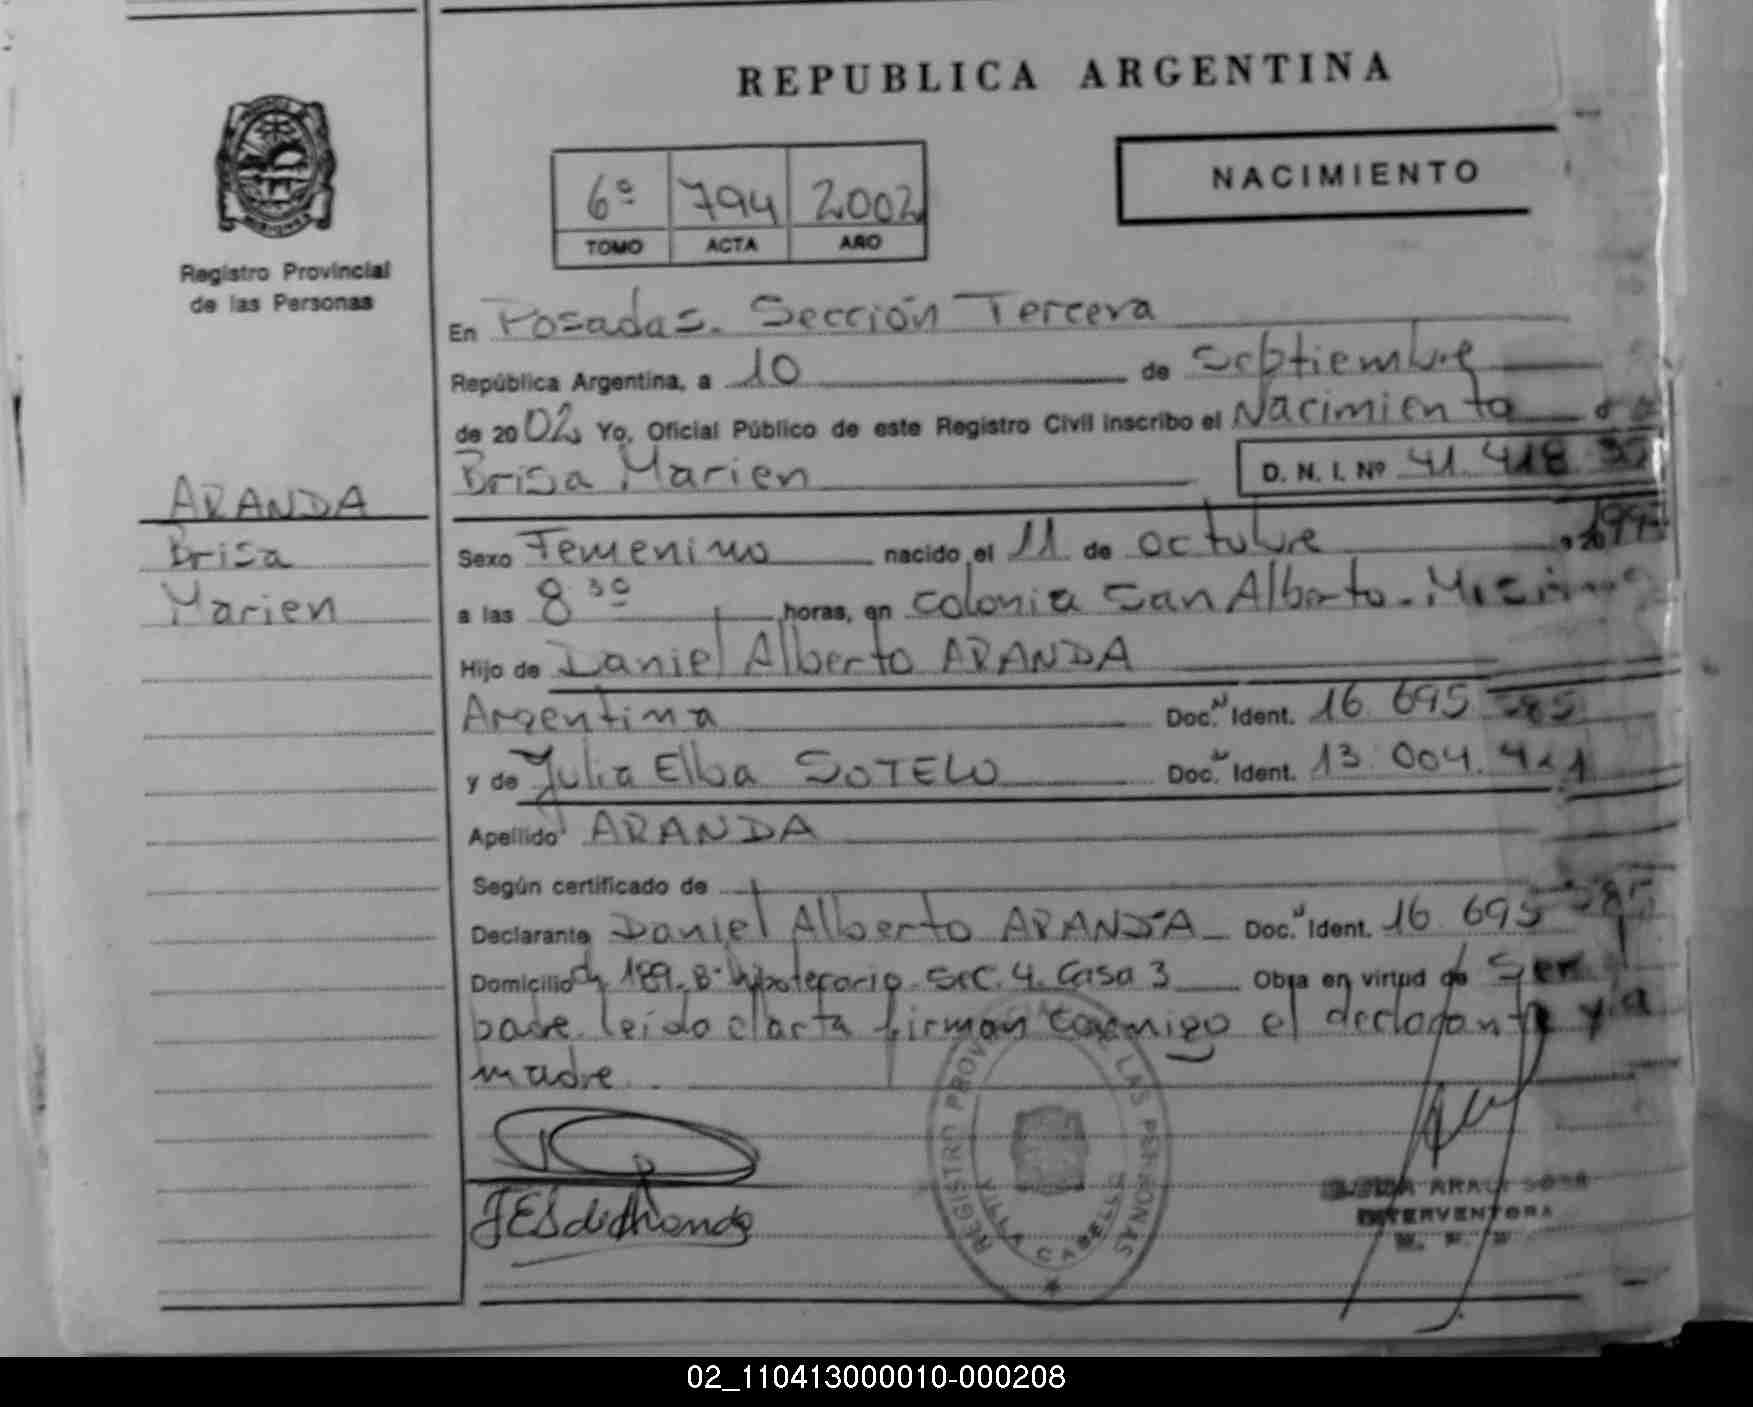 REPUBLICA ARGENTINA
NACIMIENTO
6º 794 2002
TOMO ACTA AÑO
Registro Provincial
de las Personas
En Posadas. Sección Tercera
República Argentina, a 10 de Septiembre
de 2002 Yo, Oficial Público de este Registro Civil inscribo el Nacimiento
Brisa Marien D. N. I. Nº 41.418
ARANDA
Brisa
Marien
Sexo Femenino nacido el 11 de octubre 1997
a las 8 30 horas, en colonia San Alberto - Misiones
Hijo de Daniel Alberto ARANDA
Argentina Doc. Ident. 16.695
y de Julia Elba SOTELO Doc. Ident. 13.004.
Apellido ARANDA
Según certificado de
Declarante Daniel Alberto ARANDA Doc. Ident. 16.695
Domicilio Ch 189. Bº hipotecario. Sec. 4. Casa 3 Obra en virtud de Ser
padre leído el acta firman conmigo el declarante y la
madre.
REGISTRO PROVINCIAL DE LAS PERSONAS
VILLA CABELLO
INTERVENTORA
02_110413000010-000208